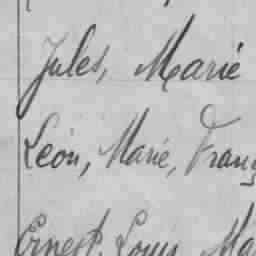 Jules, Marie
Léon, Marie, Franç
Ernest, Louis, Ma